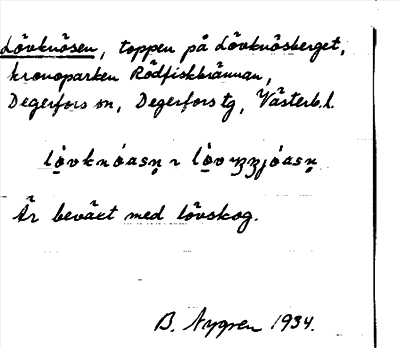 Lövknösen, toppen på Lövknösberget,
kronoparken Rödfiskbrännan,
Degerfors sn, Degerfors tg, Västerb. l.
Är beväxt med lövskog.
B. Nygren 1934.